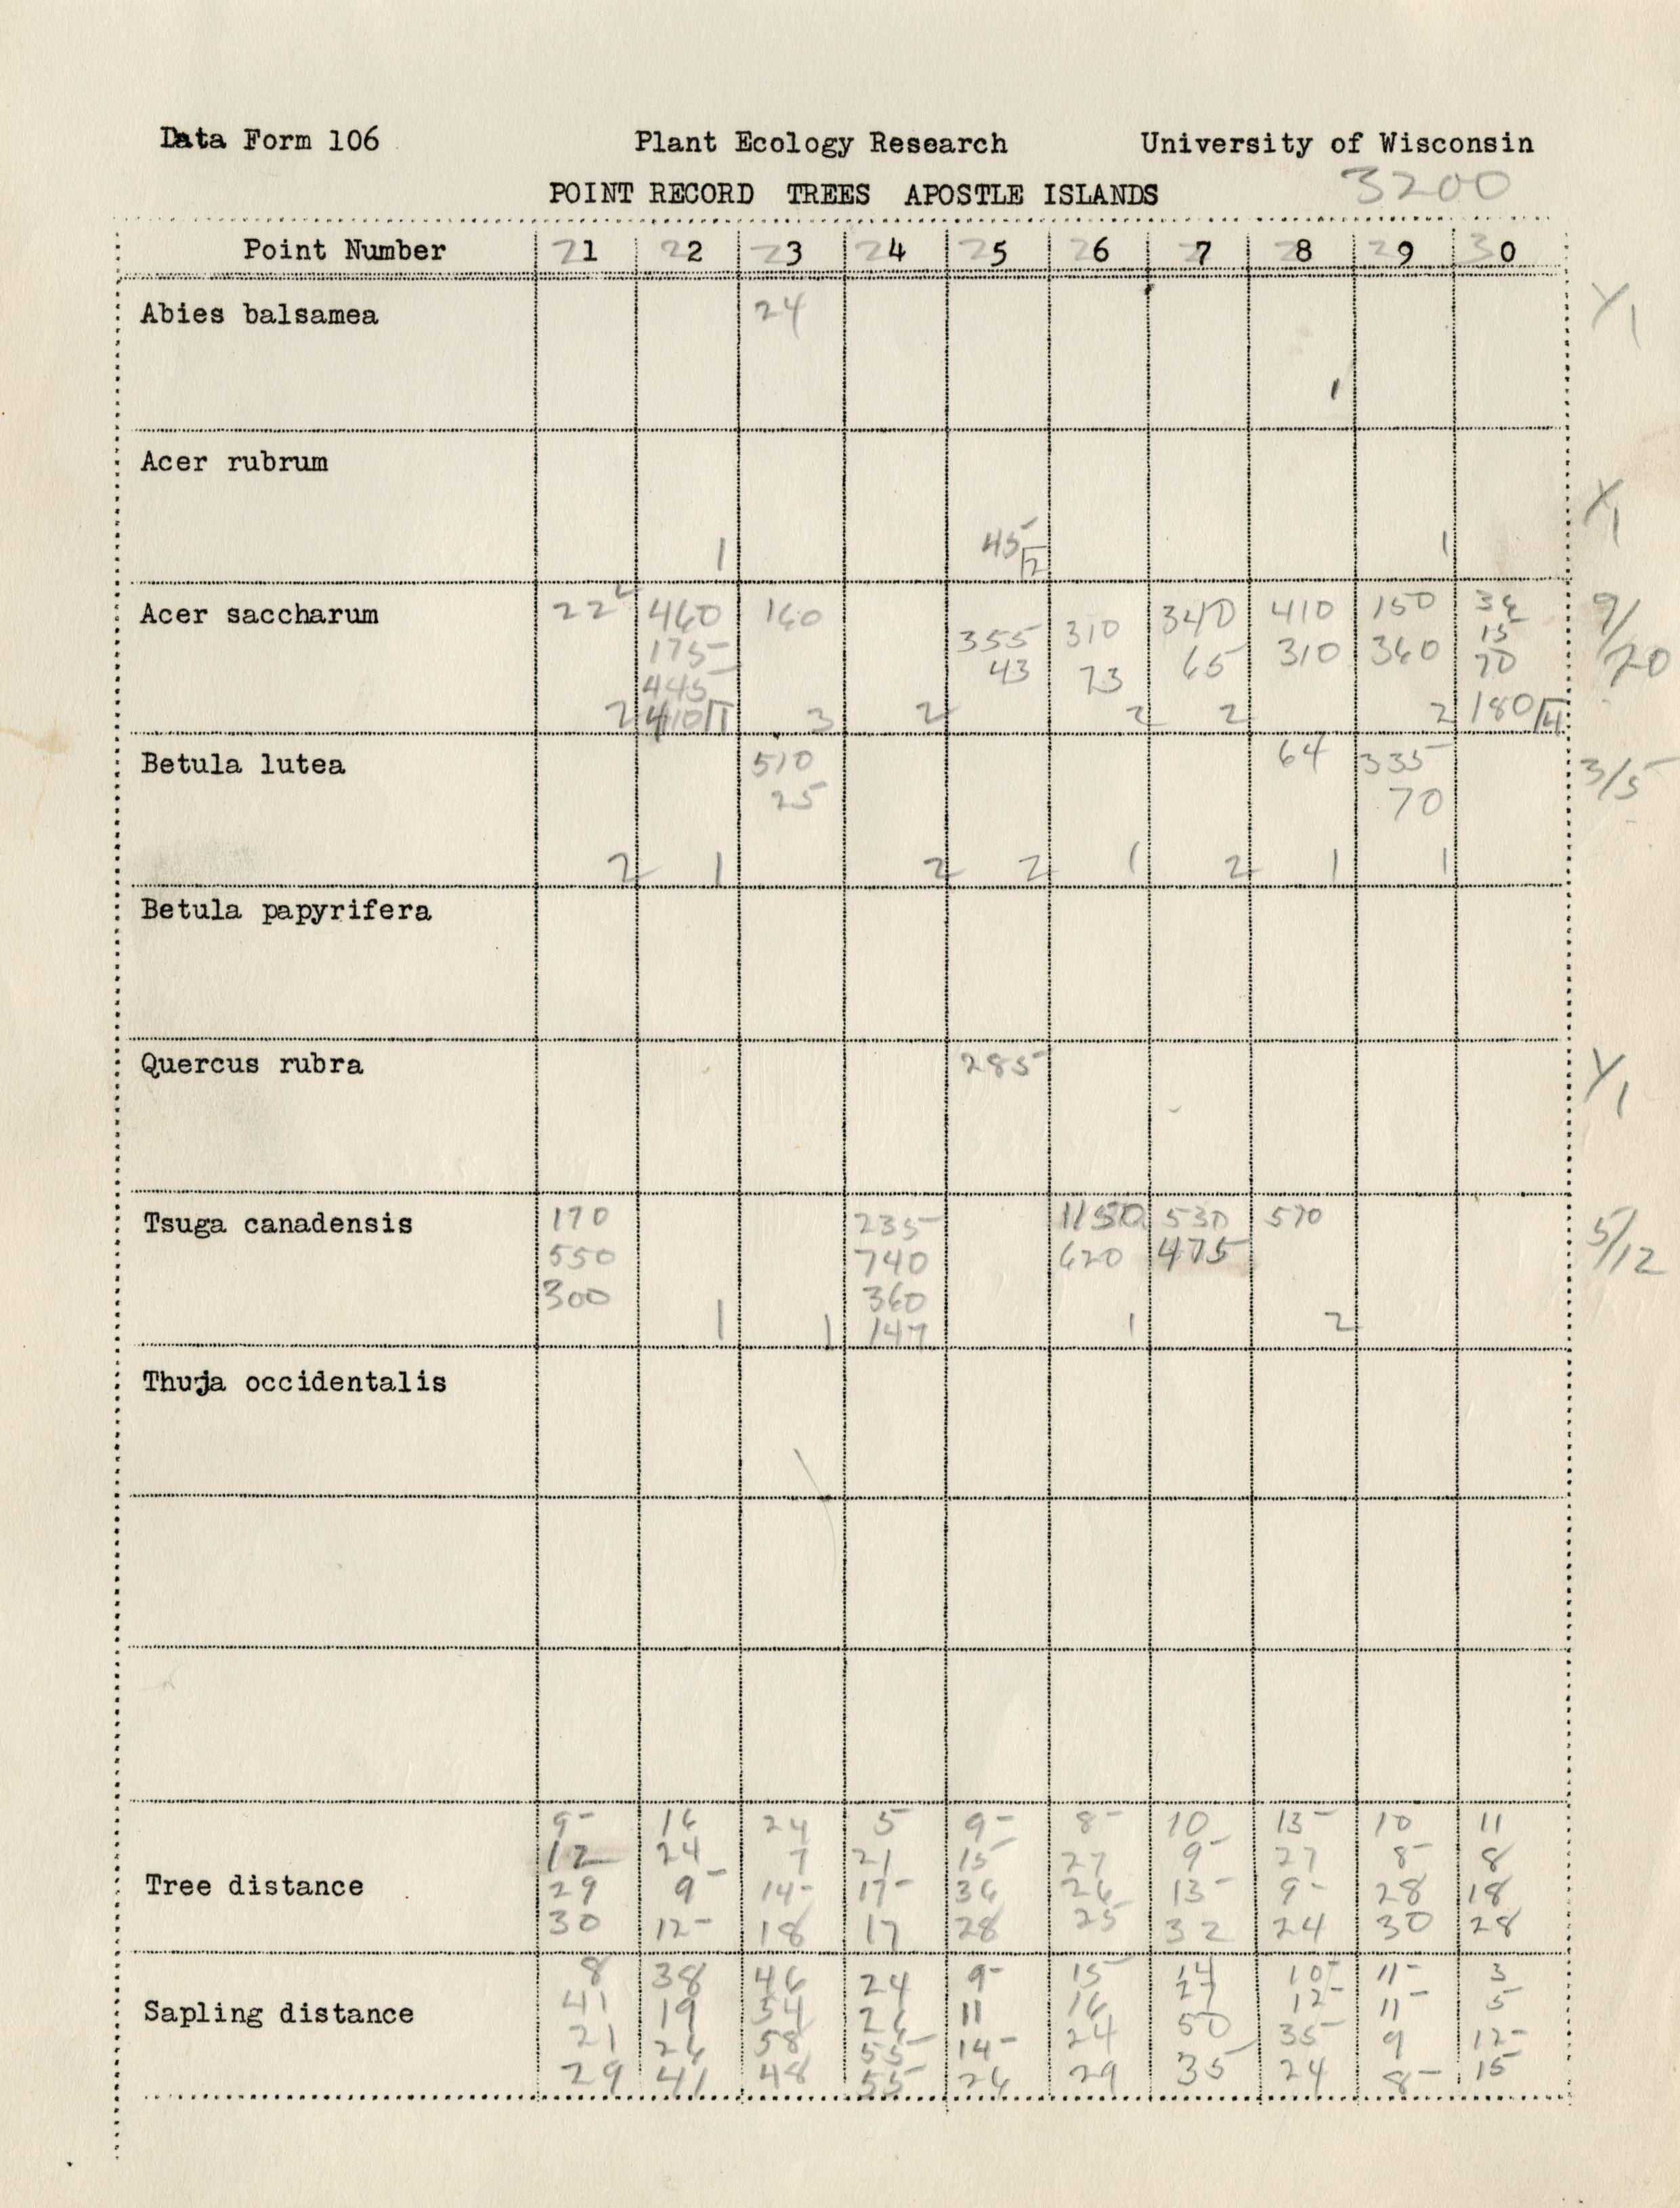 Data Form 106 Plant Ecology Research University of Wisconsin
POINT RECORD TREES APOSTLE ISLANDS 3200
Point Number 21 22 23 24 25 26 27 28 29 30
Abies balsamea 24 1/1
1
Acer rubrum 1/1
1 45 2 1
Acer saccharum 22 460 160 355 310 340 410 150 15 9/20
175 43 73 65 310 360 70
445
2 410 1 3 2 2 2 2 180 4
Betula lutea 510 64 335 3/5
25 70
2 1 2 2 1 2 1 1
Betula papyrifera
Quercus rubra 285 1/1
Tsuga canadensis 170 235 1150 530 570 5/12
550 740 620 475
300 360
1 1 147 1 2
Thuja occidentalis
9 16 24 5 9 8 10 13 10 11
12 24 7 21 15 27 9 27 8 8
Tree distance 29 9 14 17 36 26 13 9 28 18
30 12 18 17 28 25 32 24 30 28
8 38 46 24 9 15 14 10 11 3
Sapling distance 41 19 34 26 11 16 27 12 11 5
21 26 58 55 14 24 50 35 9 12
29 41 48 55 26 29 35 24 8 15